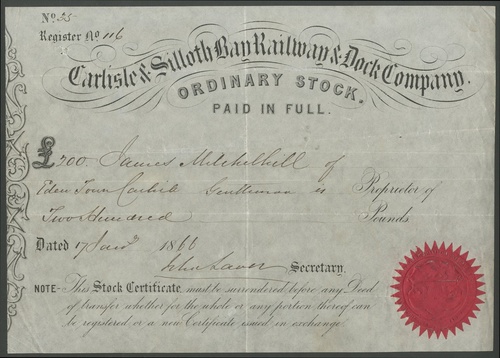 No. 55
Register No 116
Carlisle & Silloth Bay Railway & Dock Company.
ORDINARY STOCK.
PAID IN FULL.
£200 James Mitchelhill of
Eden Town Carlisle Gentleman is Proprietor of
Two Hundred Pounds
Dated 17 Jany 1866
Secretary.
NOTE - This Stock Certificate, must be surrendered before any Deed
of transfer whether for the whole or any portion thereof can
be registered or a new Certificate issued in exchange.